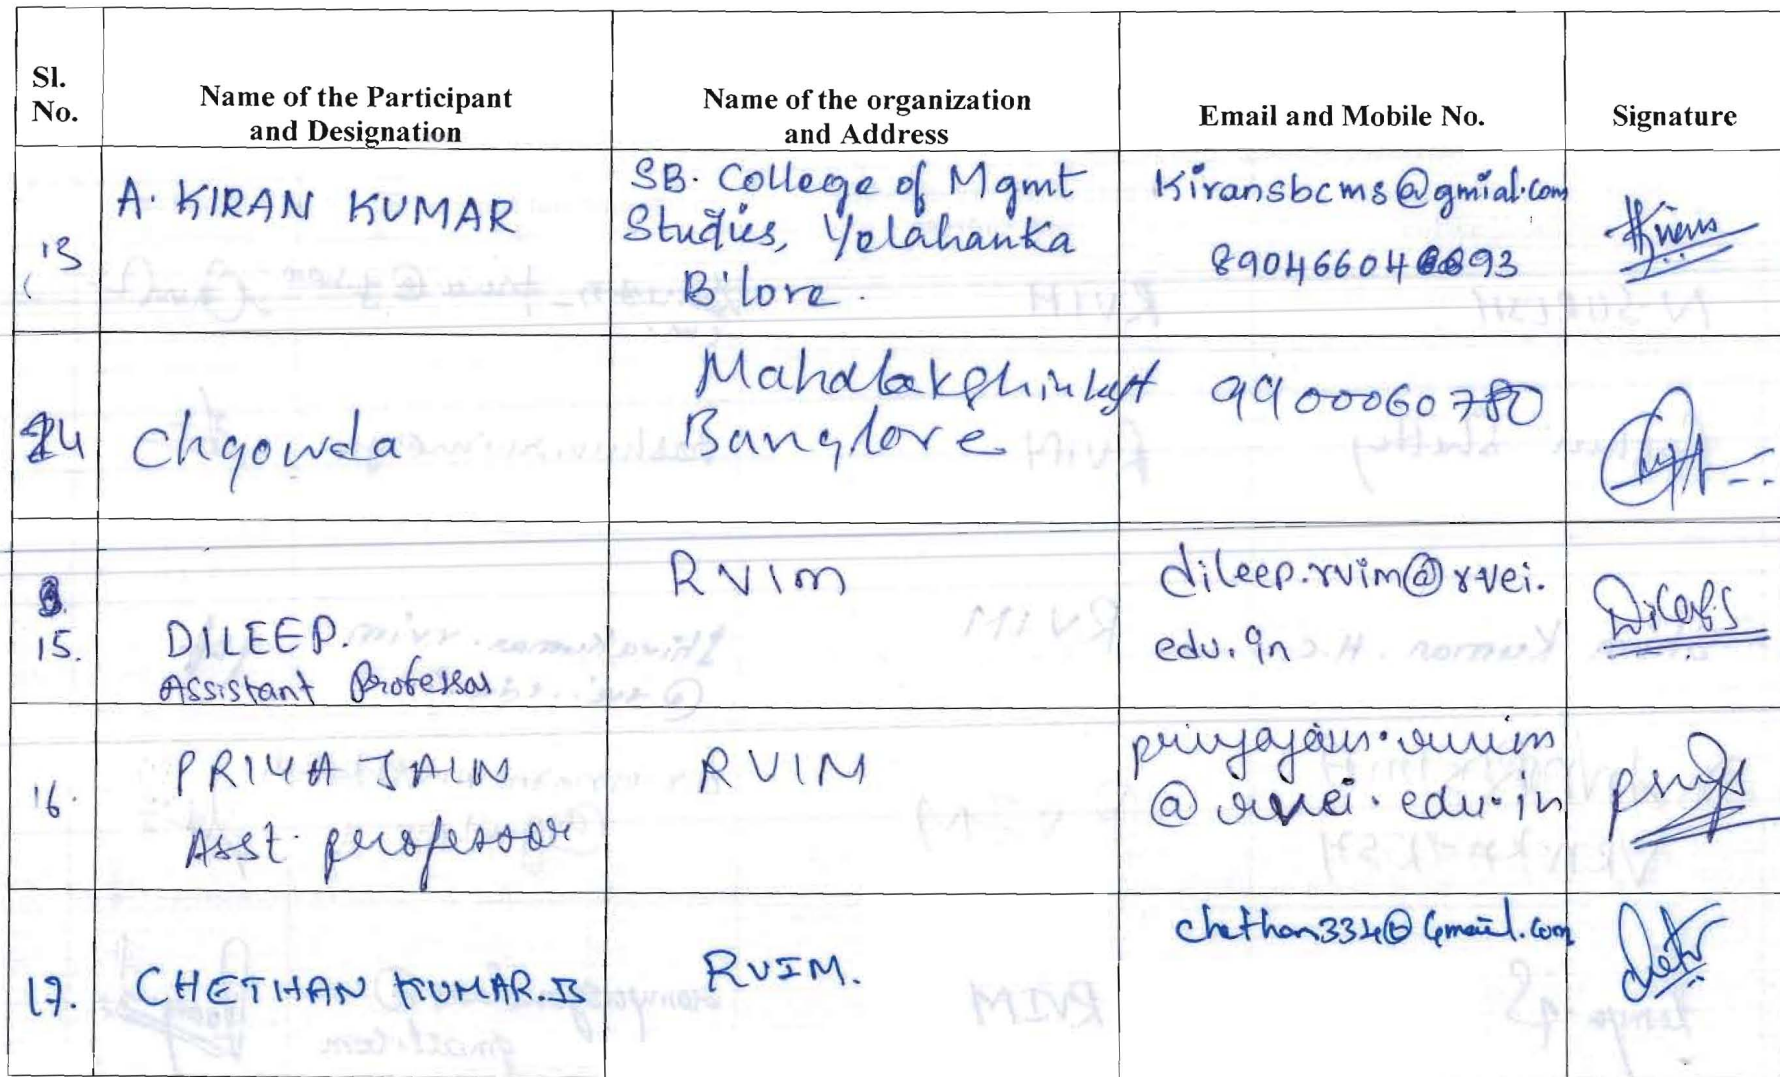 Sl. No.
Name of the Participant and Designation
Name of the organization and Address
Email and Mobile No.
Signature
13
A. KIRAN KUMAR
SB. College of Mgmt
Studies, Yelahanka
B'lore.
Kiransbcms@gmial.com
Kiran
14
Chgowda
Banglore
9900060780
15.
DILEEP.
Assistant Professor
RVIM
dileep.rvim@rvei.
edu.in
Dileep.S
16.
PRIYA JAIN
Asst. professor
RVIM
priyajain.rvim
@rvei.edu.in
Priya
17.
CHETHAN KUMAR.B
RVIM.
chethan334@Gmail.com